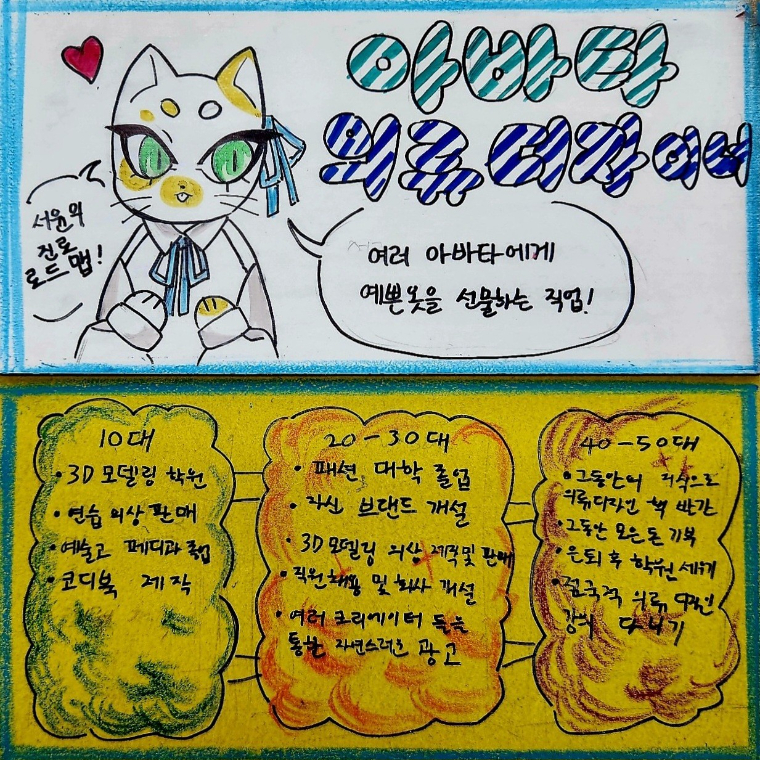 아바타
의류 디자이너
서윤의
진로
로드맵!
여러 아바타에게
예쁜 옷을 선물하는 직업!
10대
• 3D 모델링 학원
• 연습 의상 판매
• 예술고 패디과 졸업
• 코디북 제작
20-30대
• 패션 대학 졸업
• 자신 브랜드 개설
• 3D 모델링 의상 제작 및 판매
• 직원채용 및 회사 개설
• 여러 크리에이터 들을
통한 자연스러운 광고
40-50대
• 그동안의 지식으로
의류디자인 책 발간
• 그동안 모은 돈 기부
• 은퇴 후 학원 세우기
• 전국적 의류 디자인
강의 다니기